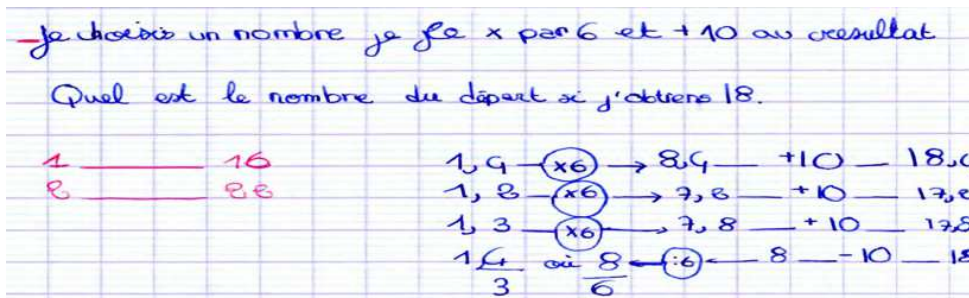 -Je choisis un nombre je le x par 6 et +10 au resultat
Quel est le nombre du départ si j'obtiens 18.
1 ——— 16
2 ——— 22
1,4 — ×6 → 8,4 — +10 — 18,
1, 2 — ×6 → 7,2 — +10 — 17,2
1, 3 — ×6 → 7, 8 — +10 — 17,8
4/3 où 8/6 ← :6 ← 8 — -10 — 18